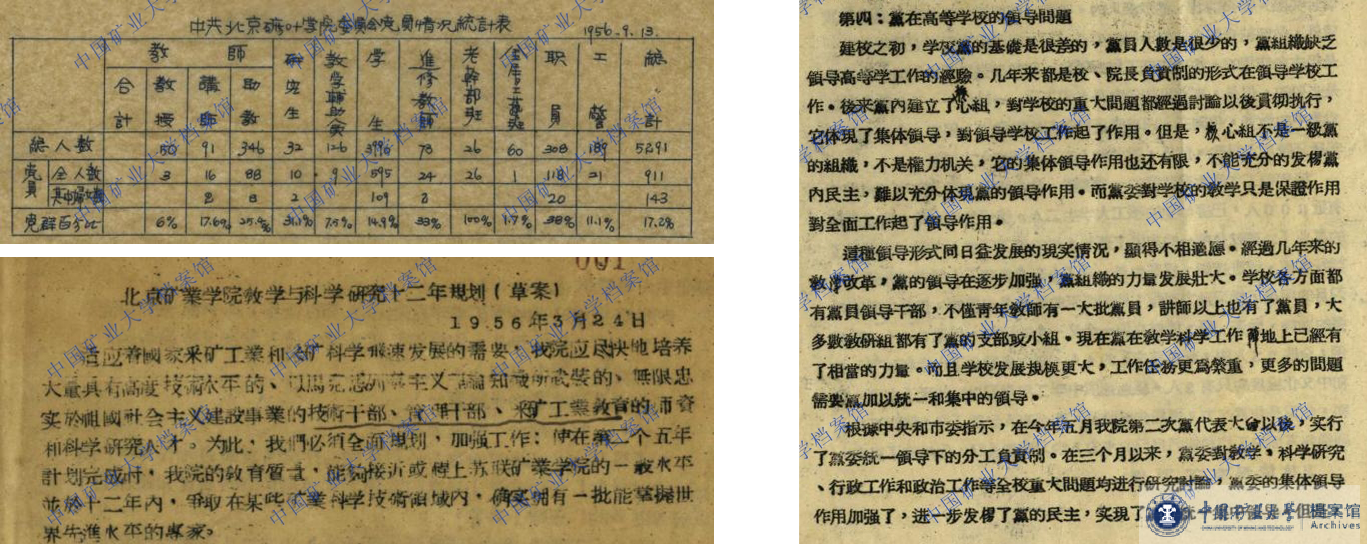 中共北京矿业学院委員会党員情况統計表
1956.9.13.
教師 研究生 教学輔助員 学生 進修教師 老幹部班 职員 工警 総計
合計 教授 講師 助教
総人数 50 91 346 32 126 3996 73 26 60 308 189 5291
党員 全人数 3 16 88 10 9 595 24 26 1 118 21 911
2 8 2 109 2 20 143
党群百分比 6% 17.6% 31.1% 7.5% 14.9% 33% 100% 1.7% 38% 11.1% 17.2%
001
北京矿業学院教学与科学研究十二年規划(草案)
1956年3月24日
适应着國家采矿工業和采矿科学飛速发展的需要,我院应尽快地培养
大量具有高度技術水平的、以馬克思列寧主义理論知識所武裝的、無限忠
实於祖國社会主义建設事業的技術干部、管理干部、采矿工業教育的师資
和科学研究人才。为此,我們必须全面規划,加强工作;使在第二个五年
計划完成时,我院的教育質量,能夠接近或赶上苏联矿業学院的一般水平
並於十二年內,爭取在某些矿業科学技術領域內,确实拥有一批能掌握世
界先進水平的專家。
第四:黨在高等学校的領导問題
建校之初,学校黨的基礎是很差的,黨員人數是很少的,黨組織缺乏
領导高等学工作的經驗。几年来都是校、院長負責制的形式在領导学校工
作。後来黨內建立了核心組,對学校的重大問題都經過討論以後貫彻执行,
它体現了集体領导,對領导学校工作起了作用。但是,核心組不是一級黨
的組織,不是權力机关,它的集体領导作用也还有限,不能充分的发楊黨
內民主,難以充分体現黨的領导作用。而黨委對学校的教学只是保證作用
對全面工作起了領导作用。
這種領导形式同日益发展的現实情況,顯得不相適應。經過几年来的
教学改革,黨的領导在逐步加強,黨組織的力量发展壯大。学校各方面都
有黨員領导干部,不僅青年教師有一大批黨員,講師以上也有了黨員,大
多數教研組都有了黨的支部或小組。現在黨在教学科学工作陣地上已經有
了相當的力量。而且学校发展規模更大,工作任務更爲繁重,更多的問題
需要黨加以統一和集中的領导。
根據中央和市委指示,在今年五月我院第二次黨代表大会以後,実行
了黨委統一領导下的分工負責制。在三个月以来,黨委對教学、科学研究
、行政工作和政治工作等全校重大問題均進行研究討論,黨委的集体領导
作用加強了,進一步发楊了黨的民主,実現了
中国矿业大学 档案馆
Archives
中国矿业大学档案馆